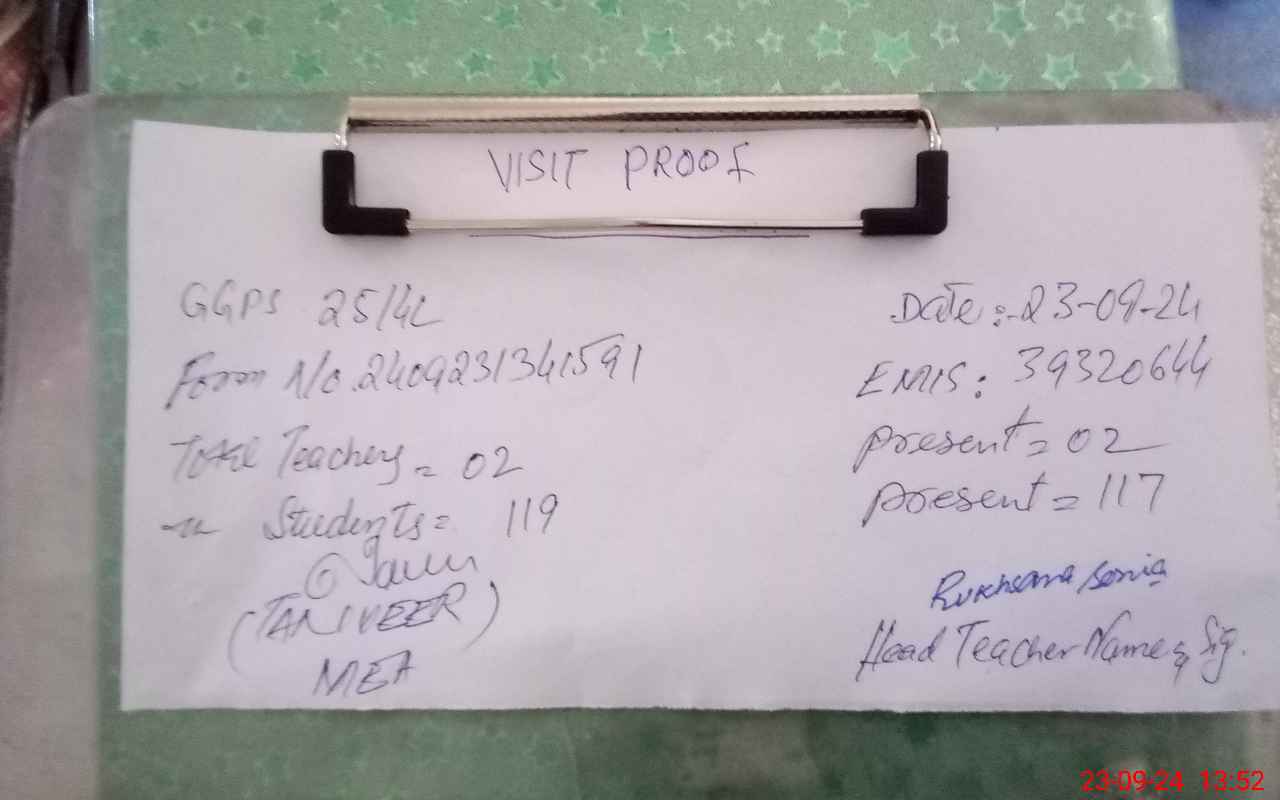 VISIT PROOF
GGPS 25/4L
Date: 23-09-24
Form No. 2409231341591
EMIS: 39320644
Total Teachers = 02
present = 02
Students = 119
present = 117
(TANVEER)
MEA
Rukhsana Sonia
Head Teacher Name & Sig.
23-09-24 13:52